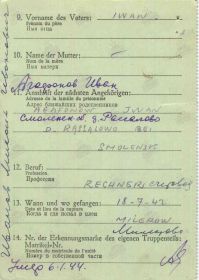 9. Vorname des Vaters: IWAN
Prénom du père
Имя отца
10. Name der Mutter: —
Nom de la mère
Имя матери
Агафонов Иван
11. Anschrift der nächsten Angehörigen:
Adresse de la famille du prisonnier
Адрес ближайших родственников
AGAFONOW IWAN
Смоленск
D. RASSALOWO BEI
SMOLENSK
12. Beruf:
Profession
Профессия
13. Wann und wo gefangen: 18-7-42
Date et lieu de la capture
Когда и где попал в плен
14. Nr. der Erkennungsmarke des eigenen Truppenteils:
Matrikel-Nr.
Numéro matricule de l'unité
Номер в собственной части
умер 6.1.44.